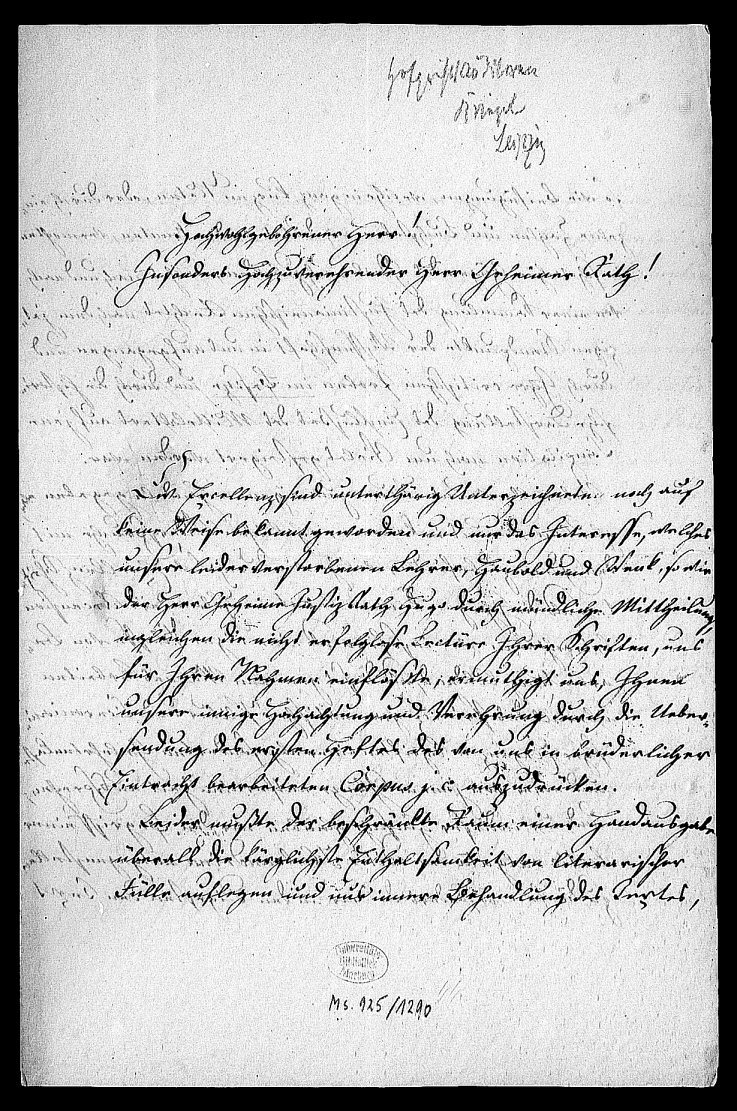 Kriegel
Leipzig
Hochwohlgebohrener Herr!
Insonders Hochzuverehrender Herr Geheimer Rath!
Ew. Excellenz sind unterthänig Unterzeichnete noch auf
keine Weise bekannt geworden und nur das Interesse, welches
unsere leider verstorbenen Lehrer, Haubold und Wenk, so wie
der Herr Geheime Justiz Rath Hugo durch mündliche Mittheilung,
ingleichen die nicht erfolglose Lectüre Ihrer Schriften, uns
für Ihren Nahmen einflößte, ermuthigt uns, Ihnen
unsere innige Hochachtung und Verehrung durch die Ueber-
sendung des ersten Heftes des von uns in brüderlicher
Eintracht bearbeiteten Corpus j. c. auszudrücken.
Leider mußte der beschränkte Raum einer Handausgabe
überall die kärglichste Enthaltsamkeit von literarischer
Fülle auflegen und nur innere Behandlung des Textes,
Universitäts
Bibliothek
Marburg
Ms. 925/1290